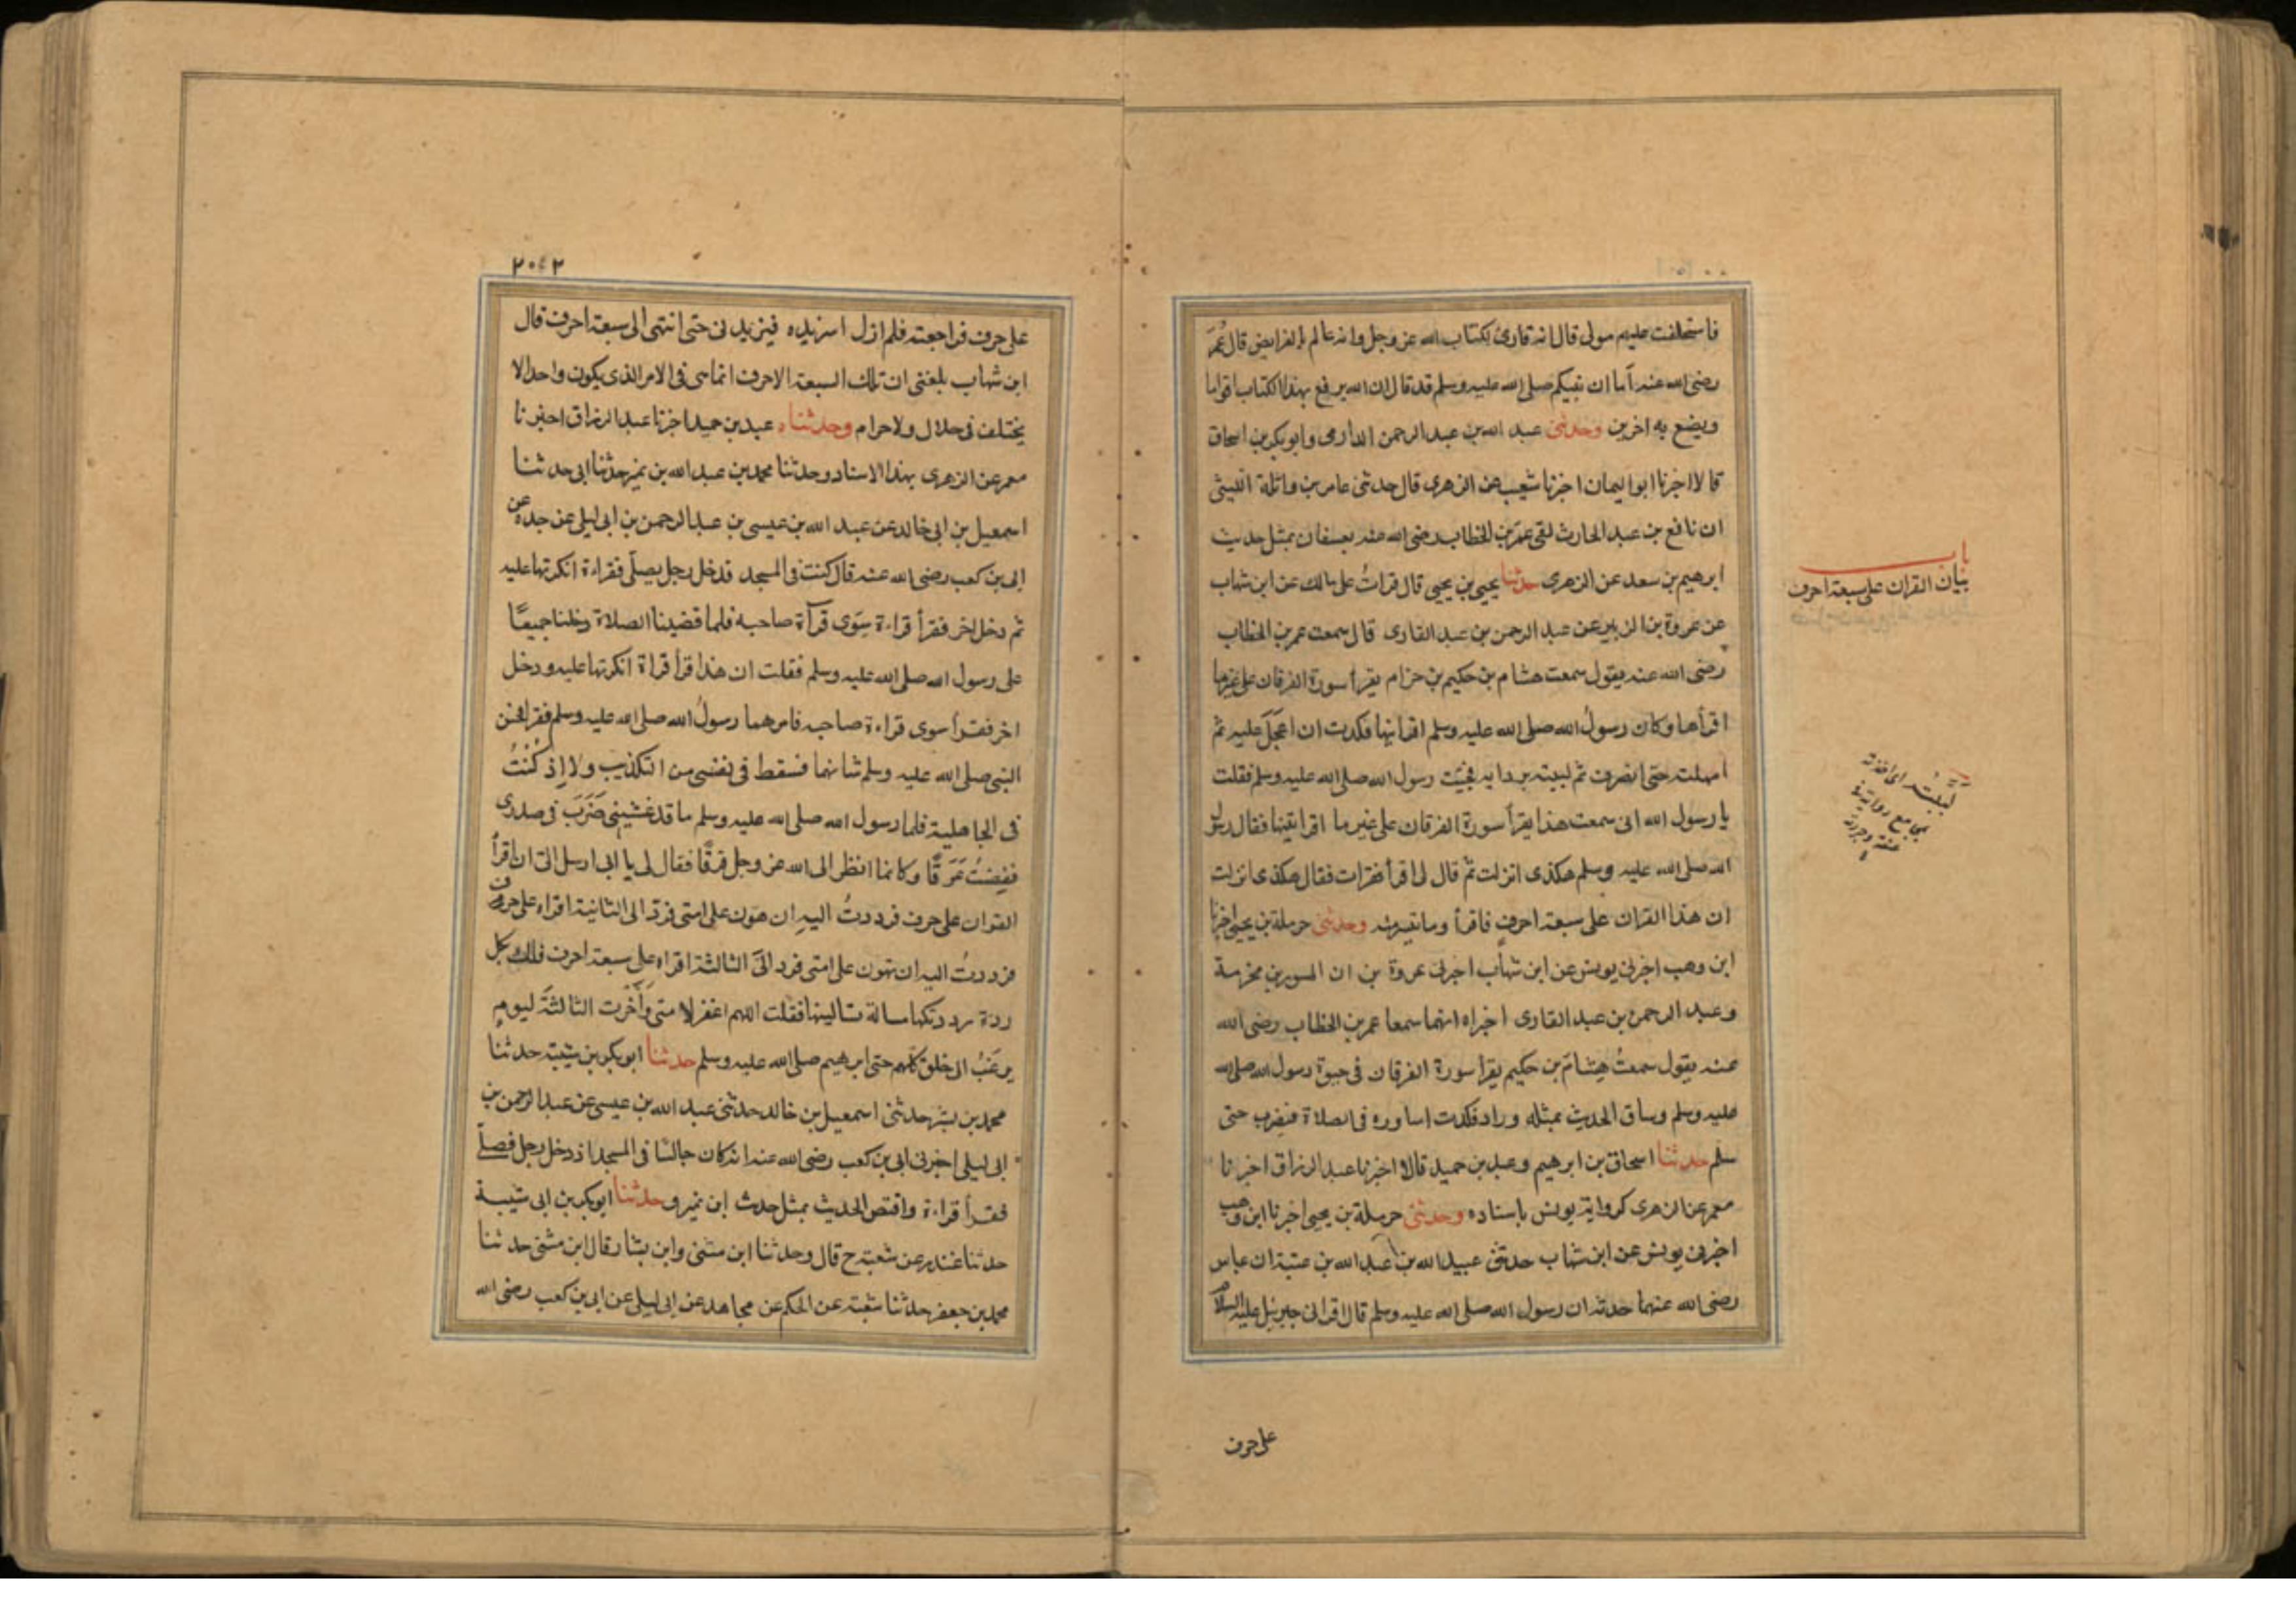 فاستخلفت عليهم مولى قال انه قارئ لكتاب الله عز وجل وانه عالم بالفرايض قال عُمَرَ
رضى الله عنه أما ان نبيكم صلى الله عليه وسلم قد قال ان الله يرفع بهذا الكتاب اقواما
ويضع به اخرين وحدثنى عبد الله بن عبد الرحمن الدارمى وابو بكر بن اسحاق
قالا اخبرنا ابو اليمان اخبرنا شعيب عن الزهرى قال حدثنى عامر بن واثلة الليثى
ان نافع بن عبد الحارث لقى عمر بن الخطاب رضى الله عنه بعسفان بمثل حديث
ابرهيم بن سعد عن الزهرى حدثنا يحيى بن يحيى قال قراتُ على مالك عن ابن شهاب
عن عروة بن الزبير عن عبد الرحمن بن عبد القارى قال سمعت عمر بن الخطاب
رضى الله عنه يقول سمعت هشام بن حكيم بن حزام يقرأ سورة الفرقان على غير ما
اقرأها وكان رسولُ الله صلى الله عليه وسلم اقرأنيها فكدت ان اعجَلَ عليه ثم
امهلت حتى انصرف ثم لببته بردايه فجئت رسول الله صلى الله عليه وسلم فقلت
يا رسول الله انى سمعت هذا يقرأ سورة الفرقان على غير ما اقرأتنيها فقال رسول
الله صلى الله عليه وسلم هكذى انزلت ثم قال لى اقرأ فقرات فقال هكذى انزلت
ان هذا القران على سبعة احرفٍ فاقرأ وما تيسر منه وحدثنى حرملة بن يحيى اخبرنا
ابن وهب اخبرنى يونس عن ابن شهاب اخبرنى عروة بن ان المسور بن مخرمة
وعبد الرحمن بن عبد القارى اخبراه انهما سمعا عمر بن الخطاب رضى الله
عنه يقول سمعتُ هِشامَ بن حكيم يقرا سورة الفرقان فى حيوة رسول الله صلى الله
عليه وسلم وساق الحديث بمثله وزاد فكدت اساوره فى الصلاة حتى
سلم حدثنا اسحاق بن ابرهيم وعبد بن حميد قالا اخبرنا عبد الرزاق اخبرنا
معمر عن الزهرى كرواية يونس باسناده وحدثنى حرملة بن يحيى اخبرنا ابن وهب
اخبرنى يونس عن ابن شهاب حدثنى عبيد الله بن عبد الله بن عتبة ان عباس
رضى الله عنهما حدثه ان رسول الله صلى الله عليه وسلم قال اقرانى جبرئيل عليه السلام
على حرف
باب
بيان القران على سبعة احرف
لَبَّبْتُه اى اخذته
بمجامع ردائه فى
عنقه وجررته
٢٠٤٢
على حرف فراجعته فلم ازل استزيده فيزيدنى حتى انتهى الى سبعة احرف قال
ابن شهاب بلغنى ان تلك السبعة الاحرف انما هى فى الامر الذى يكون واحدا لا
يختلف فى حلال ولا حرام وحدثناه عبد بن حميد اخبرنا عبد الرزاق اخبرنا
معمر عن الزهرى بهذا الاسناد وحدثنا محمد بن عبد الله بن نمير حدثنا ابى حدثنا
اسمعيل بن ابى خالد عن عبد الله بن عيسى بن عبد الرحمن بن ابى ليلى عن جده عن
ابى بن كعب رضى الله عنه قال كنت فى المسجد فدخل رجل يصلى فقراءة انكرتها عليه
ثم دخل اخر فقرأ قراءة سِوَى قرآة صاحبه فلما قضينا الصلاة دخلنا جميعًا
على رسول الله صلى الله عليه وسلم فقلت ان هذا قرأ قراة انكرتها عليه ودخل
اخر فقرأ سوى قراءة صاحبه فامرهما رسولُ الله صلى الله عليه وسلم فقرا فحسن
النبى صلى الله عليه وسلم شانهما فسقط فى نفسى من التكذيب ولا اِذ كُنْتُ
فى الجاهلية فلما رسول الله صلى الله عليه وسلم ما قد غشينى ضَرَبَ فى صدرى
ففِضتُ عَرَقًا وكانما انظر الى الله عز وجل فرقًا فقال لى يا ابى ارسل الىّ ان اقرأ
القران على حرف فرددتُ اليه ان هون على امتى فرد الى الثانية اقراه على حرف
فرددتُ اليه ان تهون على امتى فرد الىّ الثالثة اقراه على سبعة احرف فلك بكل
ردة رددتكها مسالة تسالينها فقلت اللهم اغفر لامتى وَأَخّرت الثالثةَ ليومٍ
يرغَبُ الى الخلق كلهم حتى ابرهيم صلى الله عليه وسلم حدثنا ابو بكر بن شيبة حدثنا
محمد بن بشر حدثنى اسمعيل بن خالد حدثنى عبد الله بن عيسى عن عبد الرحمن بن
ابى ليلى اخبرنى ابى بن كعب رضى الله عنه انه كان جالسًا فى المسجد اذ دخل رجل فصلّى
فقرأ قراءة واقتص الحديث بمثل حدث ابن نمير وحدثنا ابو بكر بن ابى شيبة
حدثنا غندر عن شعبة ح قال وحدثنا ابن مثنى وابن بشار قال ابن مثنى حدثنا
محمد بن جعفر حدثنا شعبة عن الحكم عن مجاهد عن ابى ليلى عن ابى بن كعب رضى الله